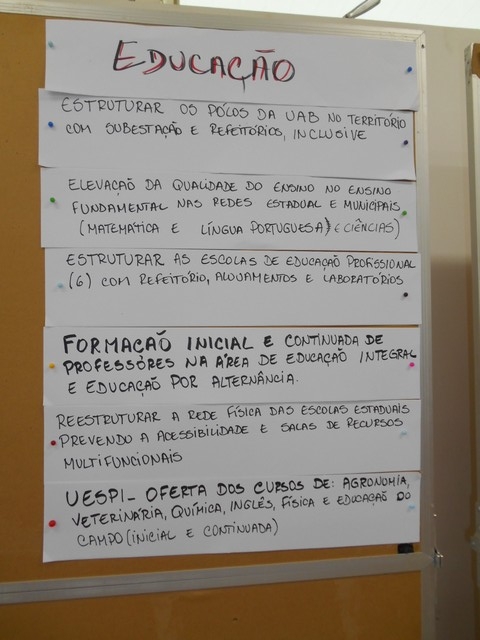 EDUCAÇÃO
ESTRUTURAR OS PÓLOS DA UAB NO TERRITÓRIO
COM SUBESTAÇÃO E REFEITÓRIOS, INCLUSIVE
ELEVAÇÃO DA QUALIDADE DO ENSINO NO ENSINO
FUNDAMENTAL NAS REDES ESTADUAL E MUNICIPAIS
(MATEMÁTICA E LÍNGUA PORTUGUESA) E CIÊNCIAS)
ESTRUTURAR AS ESCOLAS DE EDUCAÇÃO PROFISSIONAL
(6) COM REFEITÓRIO, ALOJAMENTOS E LABORATÓRIOS
FORMAÇÃO INICIAL E CONTINUADA DE
PROFESSORES NA ÁREA DE EDUCAÇÃO INTEGRAL
E EDUCAÇÃO POR ALTERNÂNCIA.
REESTRUTURAR A REDE FÍSICA DAS ESCOLAS ESTADUAIS
PREVENDO A ACESSIBILIDADE E SALAS DE RECURSOS
MULTIFUNCIONAIS
UESPI- OFERTA DOS CURSOS DE: AGRONOMIA,
VETERINÁRIA, QUÍMICA, INGLÊS, FÍSICA E EDUCAÇÃO DO
CAMPO (INICIAL E CONTINUADA)